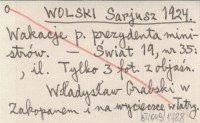 WOLSKI Sarjusz 1924.
Wakacje p. prezydenta mini-
strów. — Świat 19, nr 35:
, il. Tylko 3 fot. z objaśn.
Władysław Grabski w
Zakopanem i na wycieczce w Tatry.